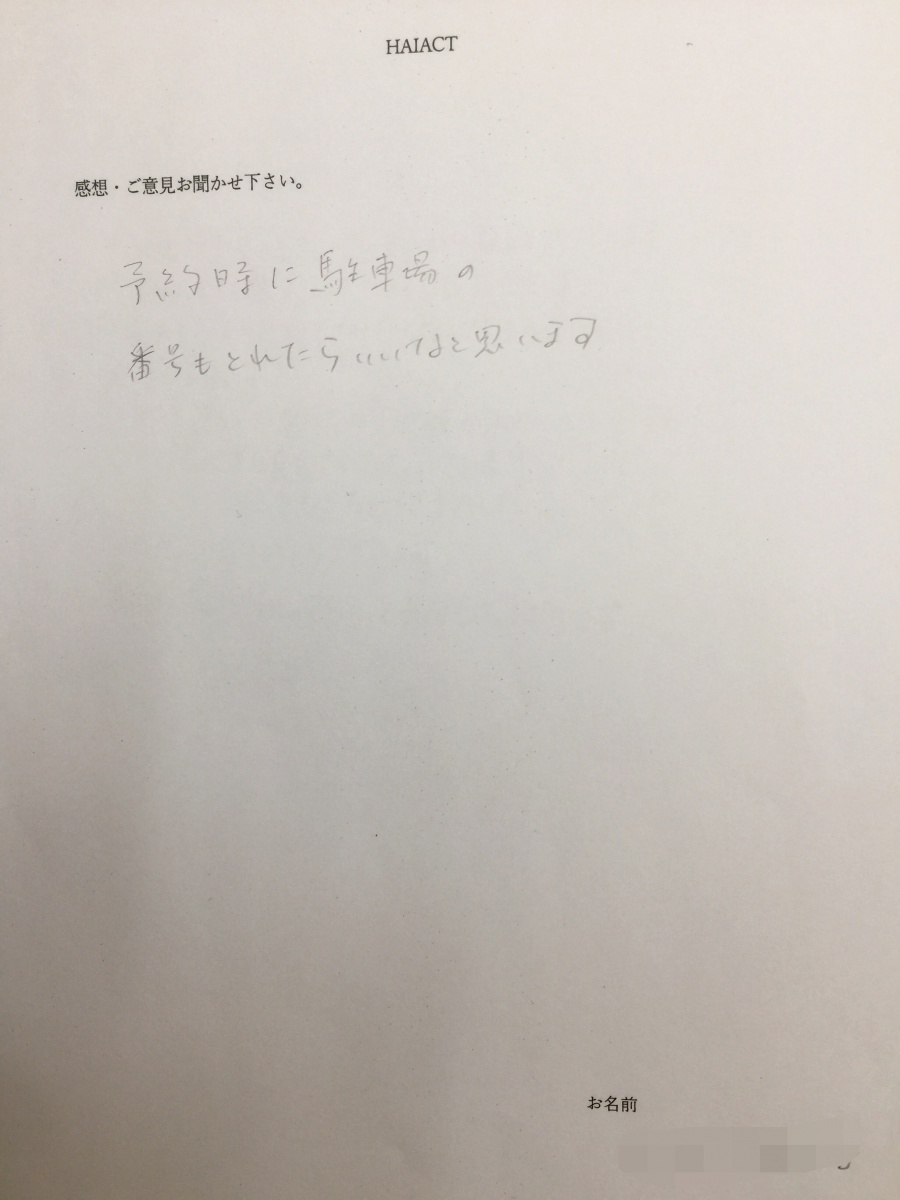 HAIACT
感想・ご意見お聞かせ下さい。
予約時に駐車場の
番号もとれたらいいなと思います
お名前